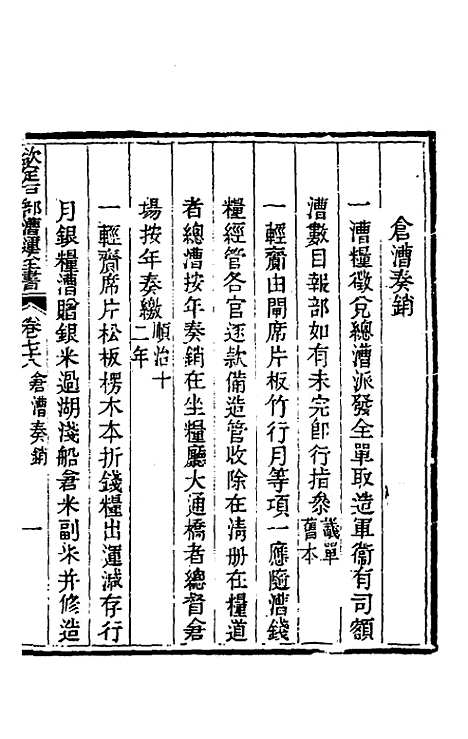 倉漕奏銷
一漕糧徵兌總漕派發全單取造軍衞有司額
漕數目報部如有未完卽行指叅議單舊本
一輕齎由閘席片板竹行月等項一應隨漕錢
糧經管各官逐款備造管收除在清册在糧道
者總漕按年奏銷在坐糧廳大通橋者總督倉
場按年奏繳順治十二年
一輕齎席片松板楞木本折錢糧出運減存行
月銀糧漕贈銀米過湖淺船倉米副米并修造
欽定戶部漕運全書
卷七十八 倉漕奏銷 一